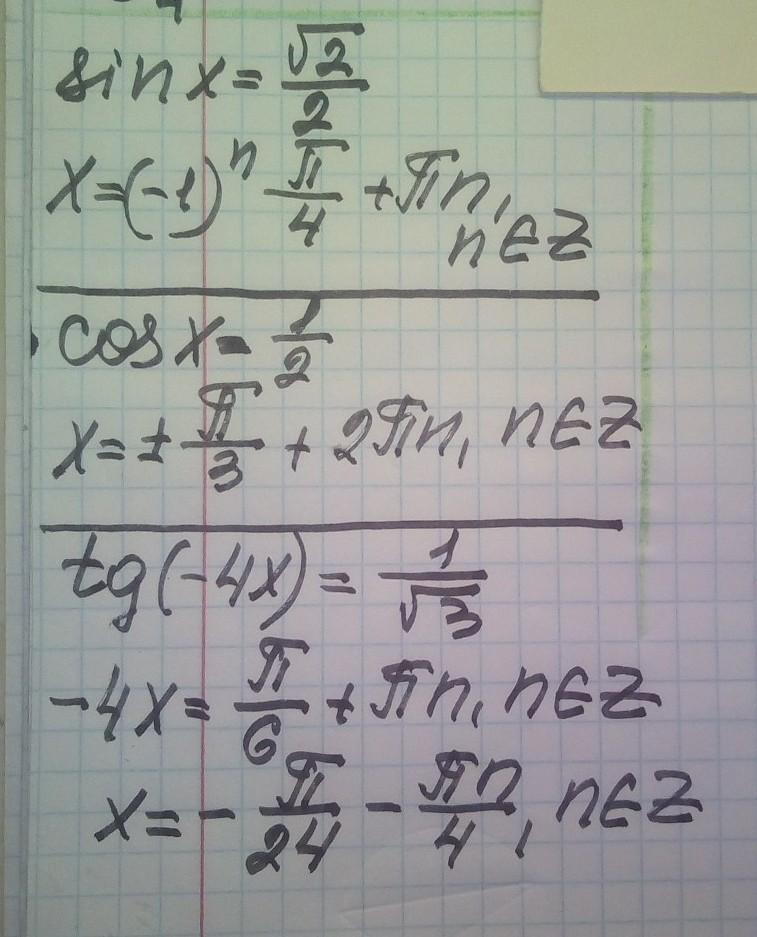 sin x = √2/2
x = (-1)ⁿ π/4 + πn,
n ∈ Z
cos x = 1/2
x = ± π/3 + 2πn, n ∈ Z
tg(-4x) = 1/√3
-4x = π/6 + πn, n ∈ Z
x = - π/24 - πn/4, n ∈ Z